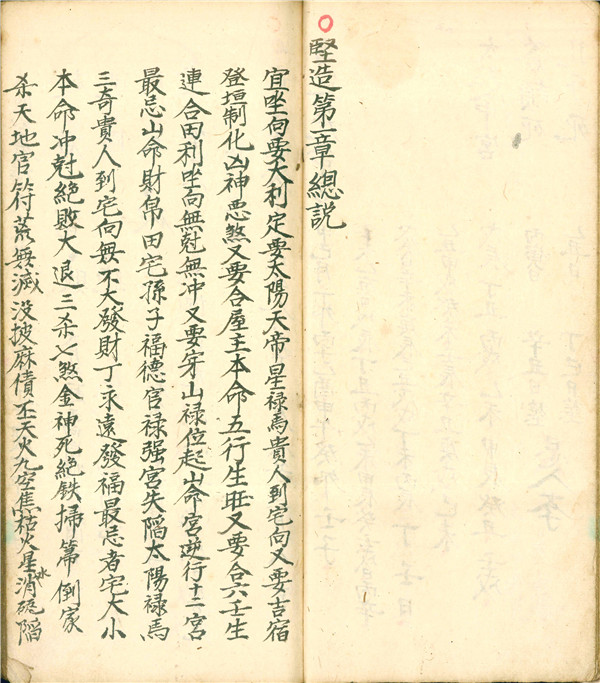 竪造第一章總説
宜坐向要大利定要太陽天帝星禄馬貴人到宅向又要吉宿
登垣制化凶神恶煞又要合屋主本命五行生旺又要合六壬生
連合田利坐向無尅無冲又要穿山禄位起山命宫逆行十二宫
最忌山命財帛田宅孫子福德官禄强宫失陷太陽禄馬
三奇貴人到宅向毋不大發財丁永遠發福最忌者宅大小
本命冲尅絶敗大退三杀七煞金神死絶鉄掃箒倒家
杀天地官符荒蕪滅没披麻債丕天火九空焦枯火星消水硯陷